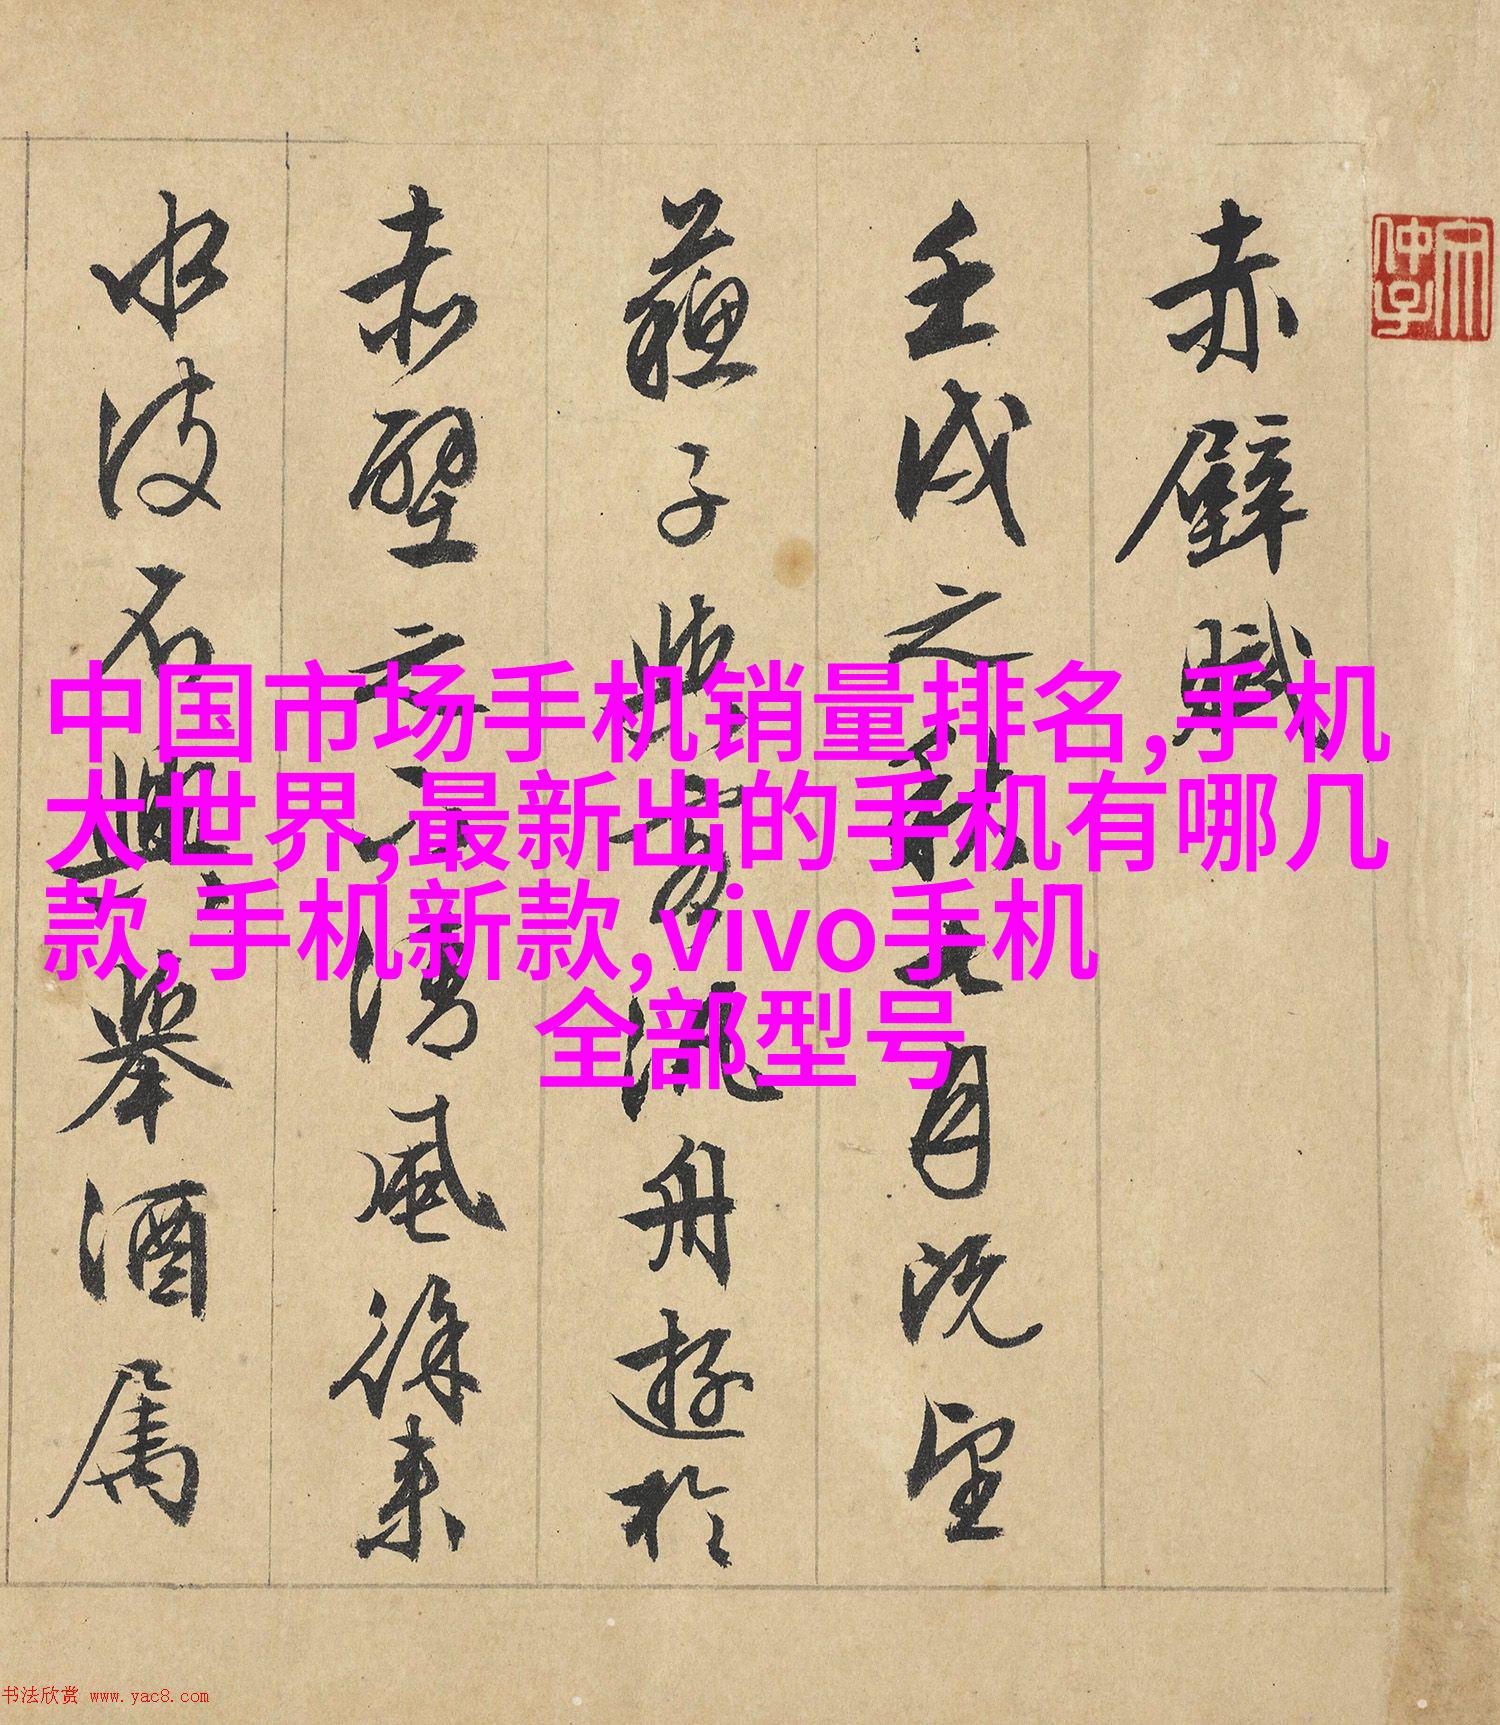 赤壁賦
壬戌之秋七月既望
蘇子與客泛舟遊於
赤壁之下清風徐来
水波不興舉酒属
中国市场手机销量排名,手机
大世界,最新出的手机有哪几
款,手机新款,vivo手机
全部型号
书法欣赏 www.yac8.com